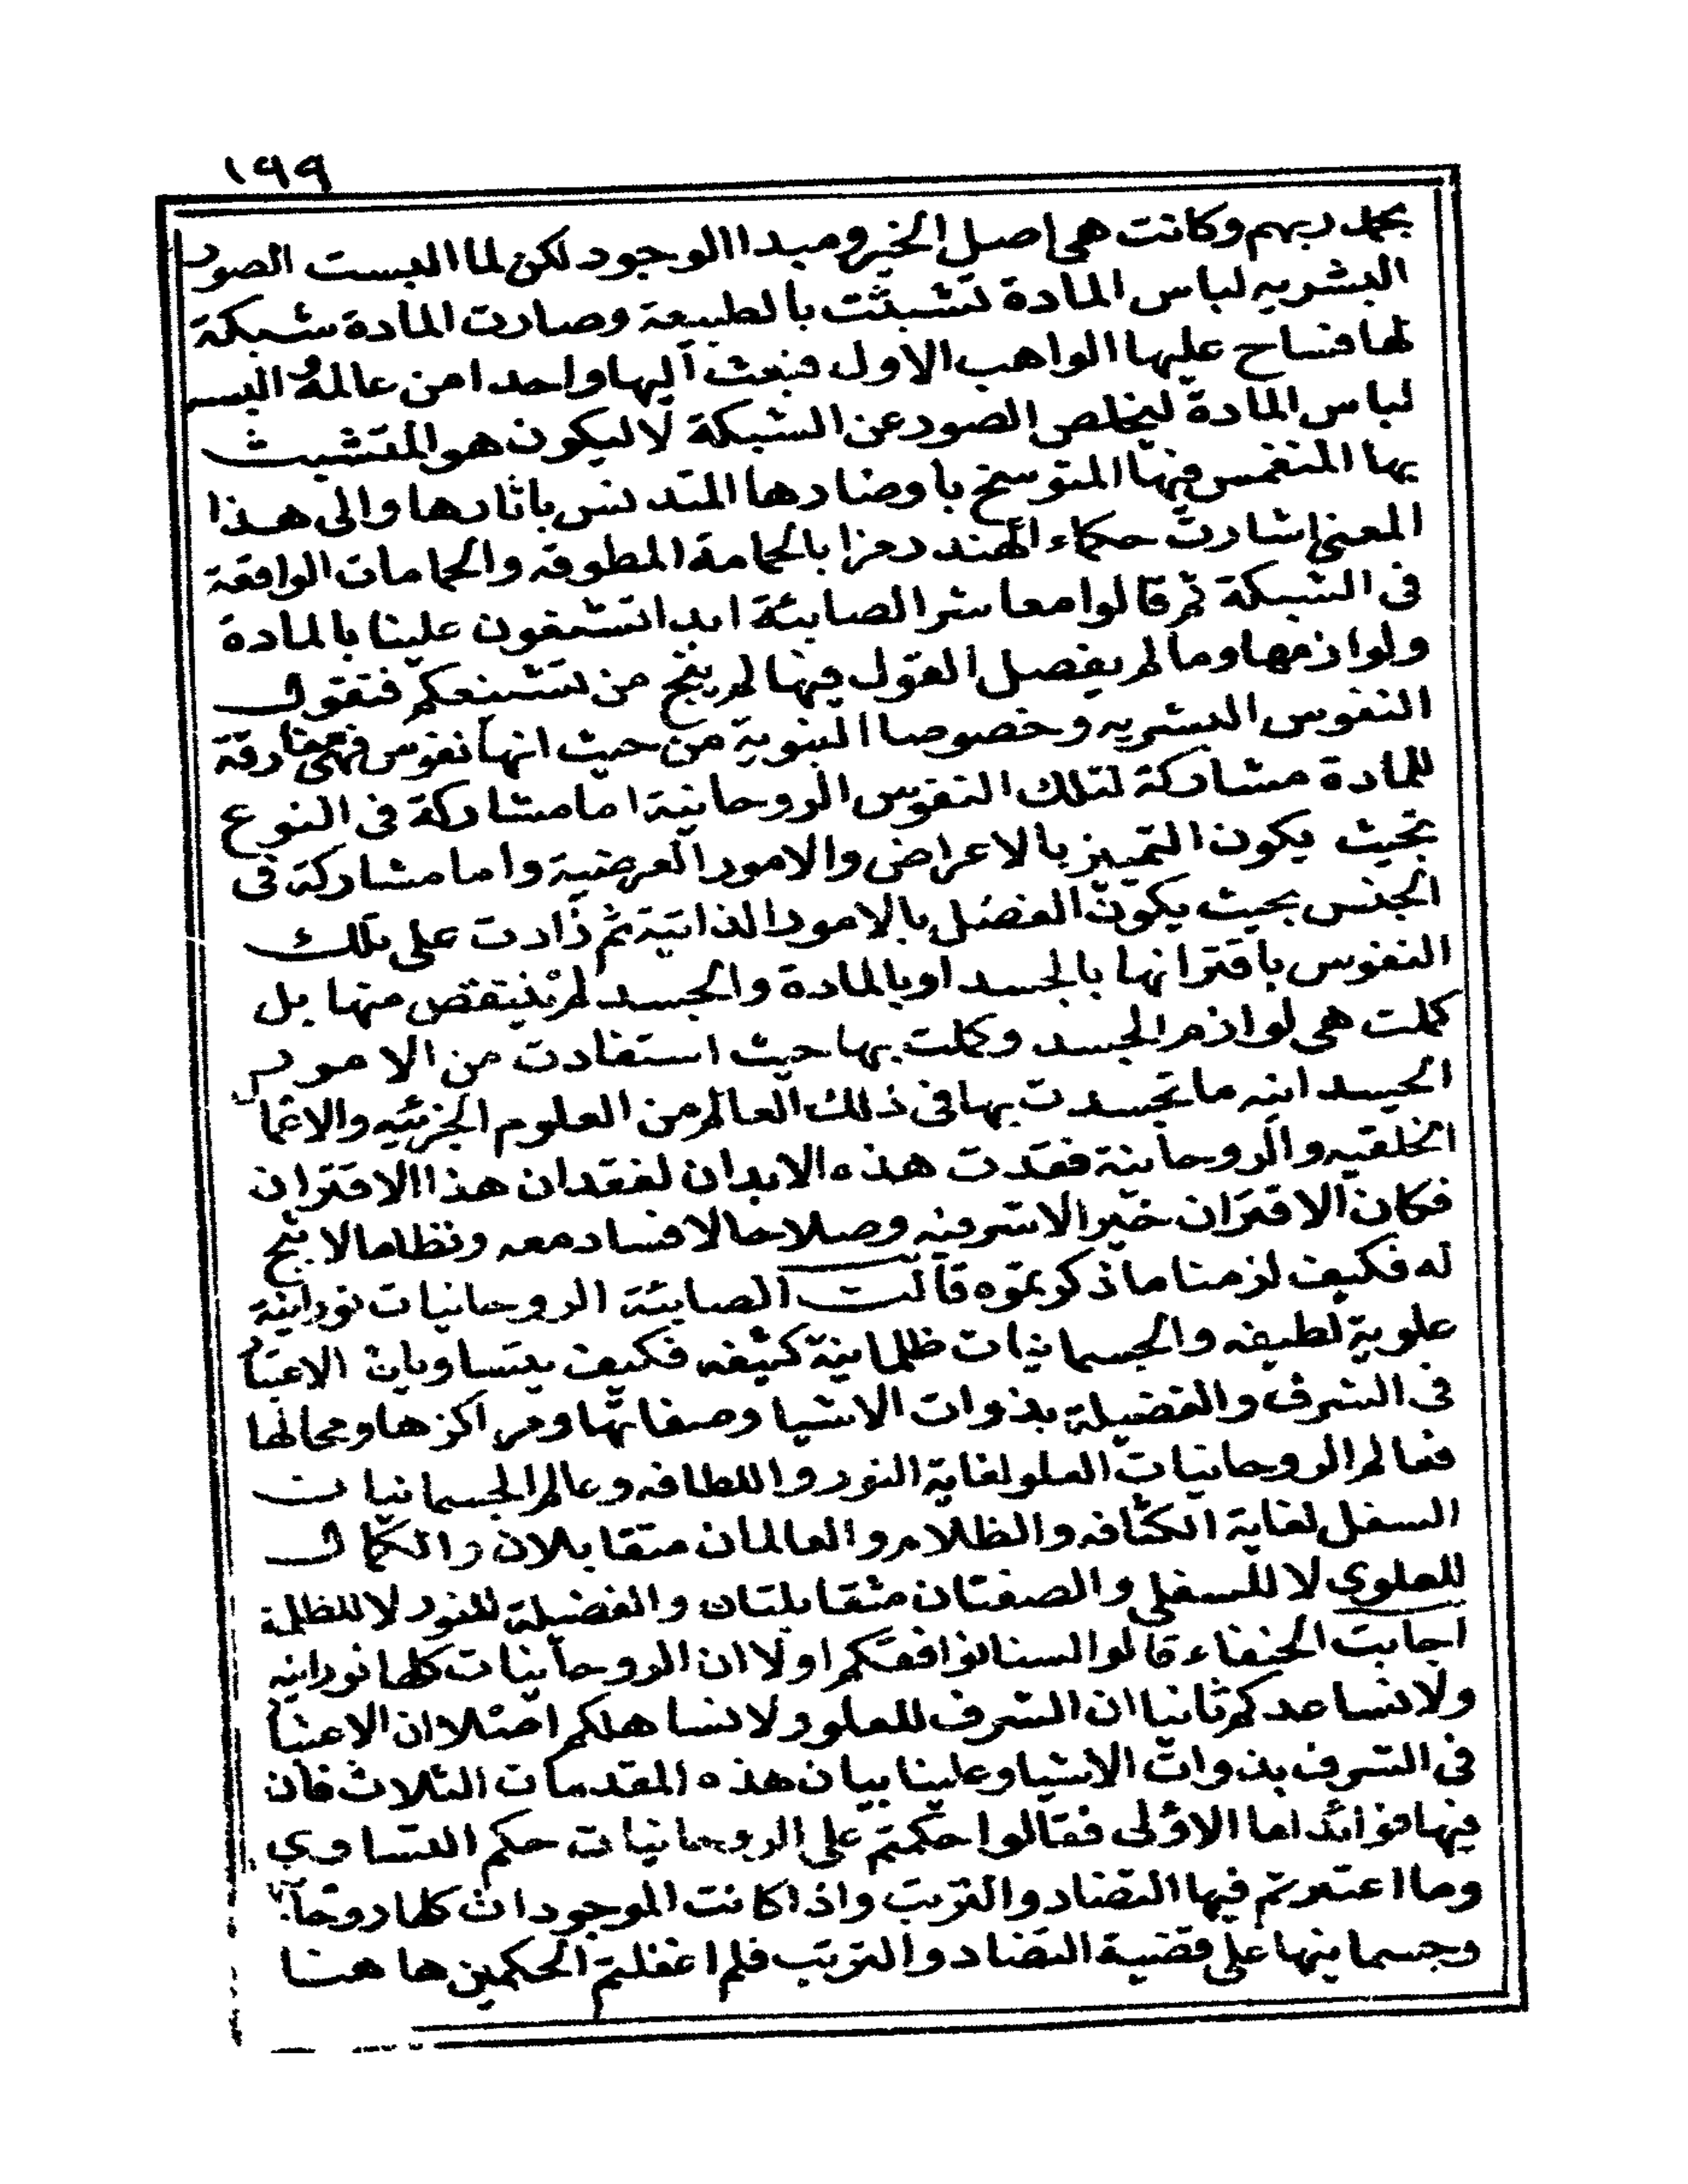 ١٩٩
بحمد ربهم وكانت هي اصل الخير ومبدا الوجود لكن لما البست الصور
البشريه لباس المادة تشبثت بالطبيعة وصارت المادة شبكة
لها فساح عليها الواهب الاول فبعث اليها واحدا من عالمه والبسه
لباس المادة ليخلص الصور عن الشبكة لا ليكون هو المتشبث
بها المنغمس فيها المتوسخ باوضارها المتدنس باثارها والى هذا
المعنى اشارت حكماء الهند رمزا بالحمامة المطوقه والحمامات الواقعة
فى الشبكة ثم قالوا معاشر الصابئة ابدا تشنعون علينا بالمادة
ولوازمها وما لم يفصل القول فيها لم ينج من تشنيعكم فنقول
النفوس البشريه وخصوصا النبوية من حيث انها نفوس فهى مفارقة
للمادة مشاركة لتلك النفوس الروحانية اما مشاركة فى النوع
بحيث يكون التمييز بالاعراض والامور العرضية واما مشاركة فى
الجنس بحيث يكون الفصل بالامور الذاتية ثم زادت على تلك
النفوس باقترانها بالجسد او بالمادة والجسد لم ينتقص منها بل
كملت هى لوازم الجسد وكملت بها حيث استفادت من الامور
الجسدانيه ما تجسدت بها فى ذلك العالم من العلوم الجزئيه والاعما
الخلقيه والروحانية فقدت هذه الابدان لفقدان هذا الاقتران
فكان الاقتران خيرا لا شر فيه وصلاحا لا فساد معه ونظاما لا ثبج
له فكيف لزمنا ما ذكرتموه قالت الصابئة الروحانيات نورانية
علوية لطيفه والجسمانيات ظلمانية كثيفه فكيف يتساويان الاعتبار
فى الشرف والفضيلة بذوات الاشيا وصفاتها ومراكزها ومحالها
فعالم الروحانيات العلو لغاية النور واللطافه وعالم الجسمانيات
السفل لغاية الكثافه والظلام والعالمان متقابلان والكمال
للعلوي لا للسفلي والصفتان متقابلتان والفضيلة للنور لا للظلمة
اجابت الحنفاء قالوا لسنا نوافقكم اولا ان الروحانيات كلها نورانيه
ولا نساعدكم ثانيا ان الشرف للعلو ولا نساهلكم اصلا ان الاعتبار
فى الشرف بذوات الاشيا وعلينا بيان هذه المقدمات الثلاث فان
فيها فوائد اما الاولى فقالوا حكمتم على الروحانيات حكم التساوي
وما اعتبرتم فيها التضاد والترتب واذا كانت الموجودات كلها روحا
وجسمانيها على قضية التضاد والترتب فلم اغفلتم الحكمين ها هنا